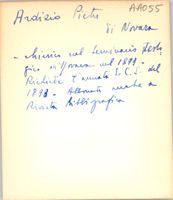 Ardizio Pietro AA055
di Novara
- chierico nel Seminario Teolo
gico di Novara nel 1893 -
Richiede l'annata I.C.S. del
1893 - Abbonato anche a
Rivista Bibliografica